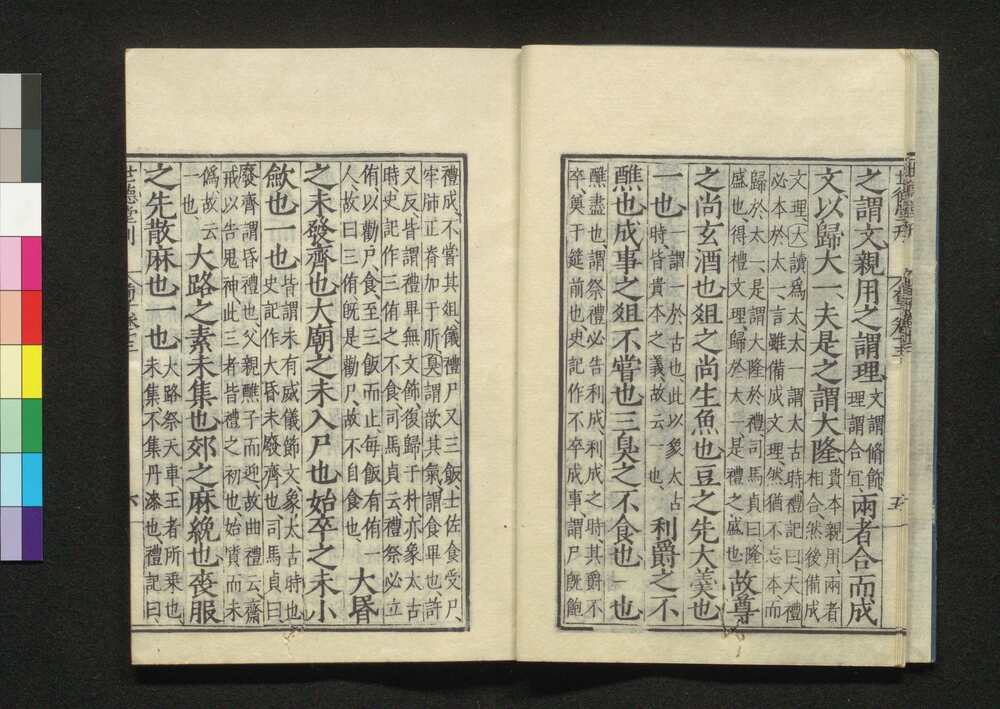 之謂文親用之謂理文謂脩飾
理謂合宜
兩者合而成
文以歸大一夫是之謂大隆貴本親用兩者
相合然後備成
文理大讀爲太太一謂太古時禮記曰夫禮
必本於太一言雖備成文理然猶不忘本而
歸於太一是謂大隆於禮司馬貞曰隆
盛也得禮文理歸於太一是禮之盛也
故尊
之尚玄酒也俎之尚生魚也豆之先大羹也
一也一謂一於古也此以象太古
時皆貴本之義故云一也
利爵之不
醮也成事之俎不嘗也三臭之不食也一也
醮盡也謂祭禮必告利成利成之時其爵不
卒奠于筵前也史記作不卒成事謂尸旣飽
五
禮成不嘗其俎儀禮尸又三飯士佐食受尸
牢肺正脊加于肵臭謂歆其氣謂食畢也許
又反皆謂禮畢無文飾復歸于朴亦象太古
時史記作三侑之不食司馬貞云禮祭必立
侑以勸尸食至三飯而止每飯有侑一
人故曰三侑旣是勸尸故不自食也
大昬
之未發齊也大廟之未入尸也始卒之未小
歛也一也皆謂未有威儀節文象太古時也
史記作大昏未廢齊也司馬貞曰
廢齊謂昏禮也父親醮子而迎故曲禮云齋
戒以告鬼神此三者皆禮之初也始質而未
僞故云
一也
大路之素未集也郊之麻絻也喪服
之先散麻也一也大路祭天車王者所乗也
未集不集丹漆也禮記曰
世德堂刊
六